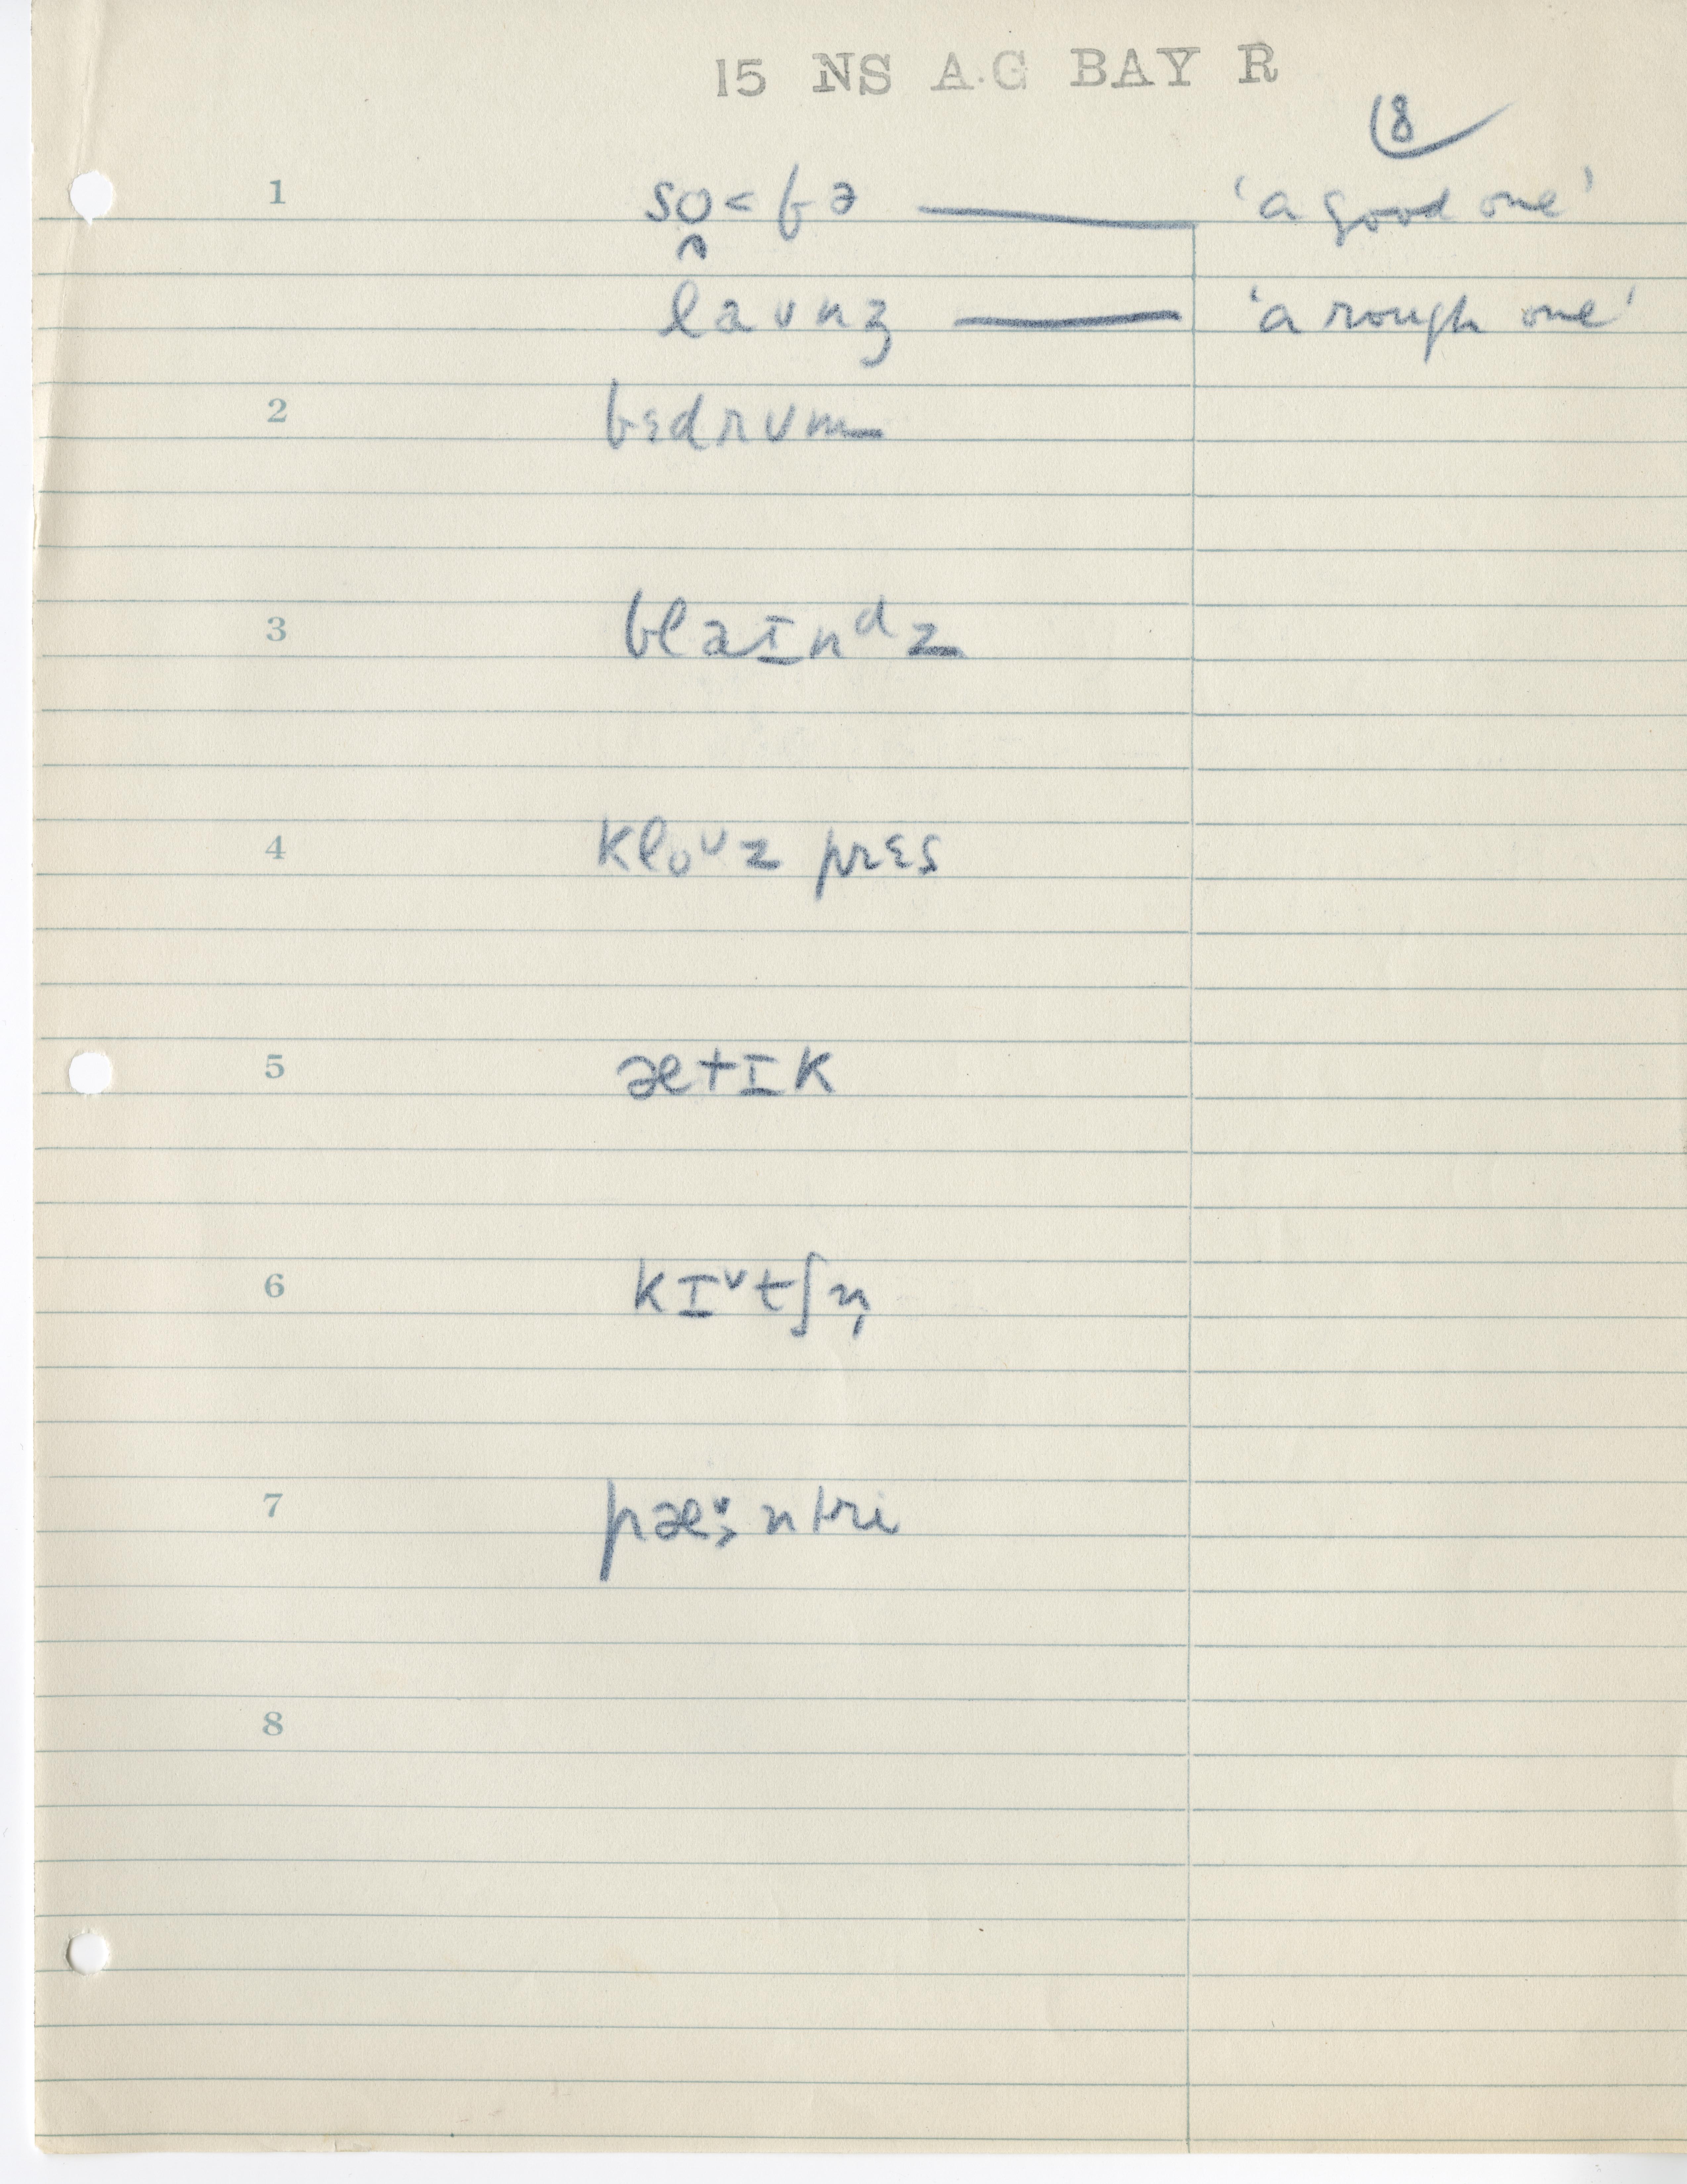 15 NS A.G BAY R
18
1 so̯˂fə ‘a good one’
laʊnʒ ‘a rough one’
2 bɛdrʊm
3 blaɪnᵈz
4 kloᶷz prɛs
5 ætɪk
6 kɪᵛtʃn̩
7 pæ̌ːntri
8